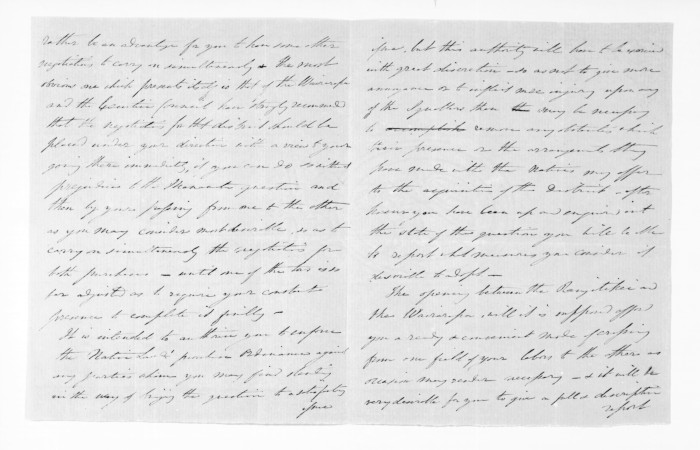 rather be an advantage for you to have some other
negotiation to carry on simultaneously & the most
obvious one which presents itself is that of the Wairarapa
and the Executive Council have strongly recommended
that the negotiation for that district should be
placed under your direction with a view to your
going there immediately, if you can do so without
prejudice to the Manawatu question and
then by your passing from one to the other
as you may consider most desirable, so as to
carry on simultaneously the negotiation for
both purchases – until one of the two is so
far adjusted as to require your constant
presence to complete it finally –
It is intended to authorize you to enforce
the Native Land purchase Ordinance against
any parties whom you may find standing
in the way of bringing the question to a satisfactory
issue
issue, but this authority will have to be exercised
with great discretion & so as not to give more
annoyance or to inflict more injury upon any
of the Squatters than may be necessary
to accomplish remove any obstacles which
their presence or the arrangements they
have made with the Natives may offer
to the acquisition of the District. After
however you have been up and enquired into
the state of this question you will be able
to report what measures you consider it
desirable to adopt –
The opening between the Rangitikei and
the Wairarapa will it is supposed afford
you a ready & convenient mode of crossing
from one field of your labors to the other as
occasion may render necessary – & it will be
very desirable for you to give a full & descriptive
report